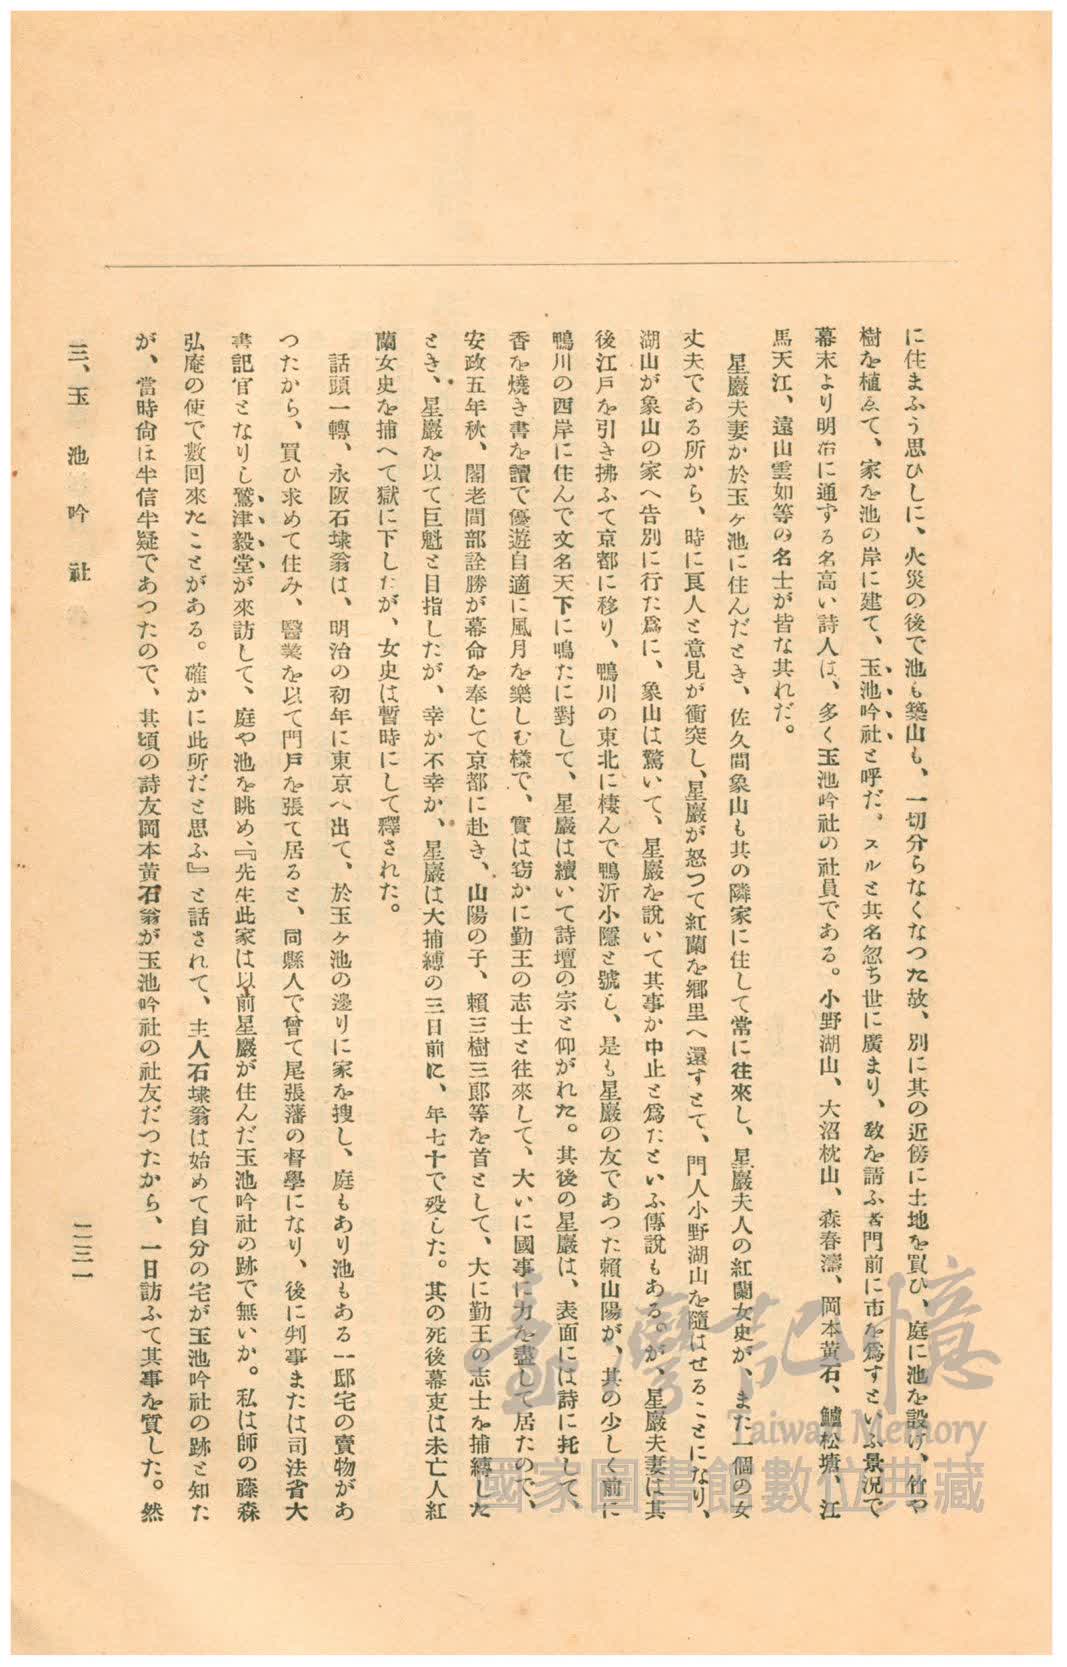 に住まふう思ひしに、火災の後で池も築山も、一切分らなくなつた故、別に其の近傍に土地を買ひ、庭に池を設け、竹や
樹を植ゑて、家を池の岸に建て、玉池吟社と呼だ。スルと其名忽ち世に廣まり、敎を請ふ者門前に市を爲すといふ景況で
幕末より明治に通ずる名高い詩人は、多く玉池吟社の社員である。小野湖山、大沼枕山、森春濤、岡本黃石、鱸松塘、江
馬天江、遠山雲如等の名士が皆な其れだ。
星巖夫妻か於玉ヶ池に住んだとき、佐久間象山も其の隣家に住して常に往來し、星巖夫人の紅蘭女史が、また一個の女
丈夫である所から、時に良人と意見が衝突し、星巖が怒つて紅蘭を鄕里へ還すとて、門人小野湖山を隨はせることになり、
湖山が象山の家へ告別に行た爲に、象山は驚いて、星巖を說いて其事か中止と爲たといふ傳說もある。が、星巖夫妻は其
後江戶を引き拂ふて京都に移り、鴨川の東北に棲んで鴨沂小隱と號し、是も星巖の友であつた賴山陽が、其の少しく前に
鴨川の西岸に住んで文名天下に鳴たに對して、星巖は續いて詩壇の宗と仰がれた。其後の星巖は、表面には詩に托して、
香を燒き書を讀で優遊自適に風月を樂しむ樣で、實は窃かに勤王の志士と往來して、大いに國事に力を盡して居たので、
安政五年秋、閣老間部詮勝が幕命を奉じて京都に赴き、山陽の子、賴三樹三郎等を首として、大に勤王の志士を捕縛した
とき、星巖を以て巨魁と目指したが、幸か不幸か、星巖は大捕縛の三日前に、年七十で歿した。其の死後幕吏は未亡人紅
蘭女史を捕へて獄に下したが、女史は暫時にして釋された。
話頭一轉、永阪石埭翁は、明治の初年に東京へ出て、於玉ヶ池の邊りに家を搜し、庭もあり池もある一邸宅の賣物があ
つたから、買ひ求めて住み、醫業を以て門戶を張て居ると、同縣人で曾て尾張藩の督學になり、後に判事または司法省大
書記官となりし鷲津毅堂が來訪して、庭や池を眺め、『先生此家は以前星巖が住んだ玉池吟社の跡で無いか。私は師の藤森
弘庵の使で數回來たことがある。確かに此所だと思ふ』と話されて、主人石埭翁は始めて自分の宅が玉池吟社の跡と知た
が、當時尙ほ半信半疑であつたので、其頃の詩友岡本黃石翁が玉池吟社の社友だつたから、一日訪ふて其事を質した。然
三、玉池吟社
二三一
臺灣記憶
Taiwan Memory
國家圖書館數位典藏